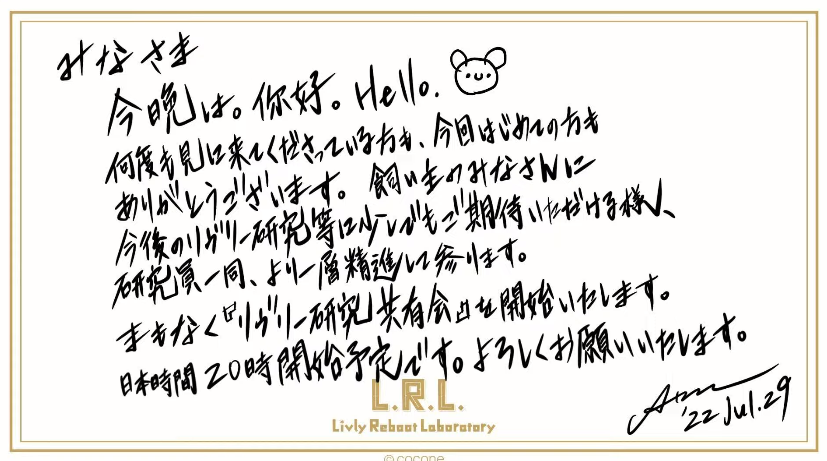 みなさま
今晩は。你好。Hello.
何度も見に来てくださっている方も、今回はじめての方も
ありがとうございます。飼い主のみなさんに
今後のリヴリー研究等に少しでもご期待いただける様、
研究員一同、より一層精進して参ります。
まもなく『リヴリー研究共有会』を開始いたします。
日本時間20時開始予定です。よろしくお願いいたします。
'22 Jul.29
L.R.L.
Livly Reboot Laboratory
© cocone